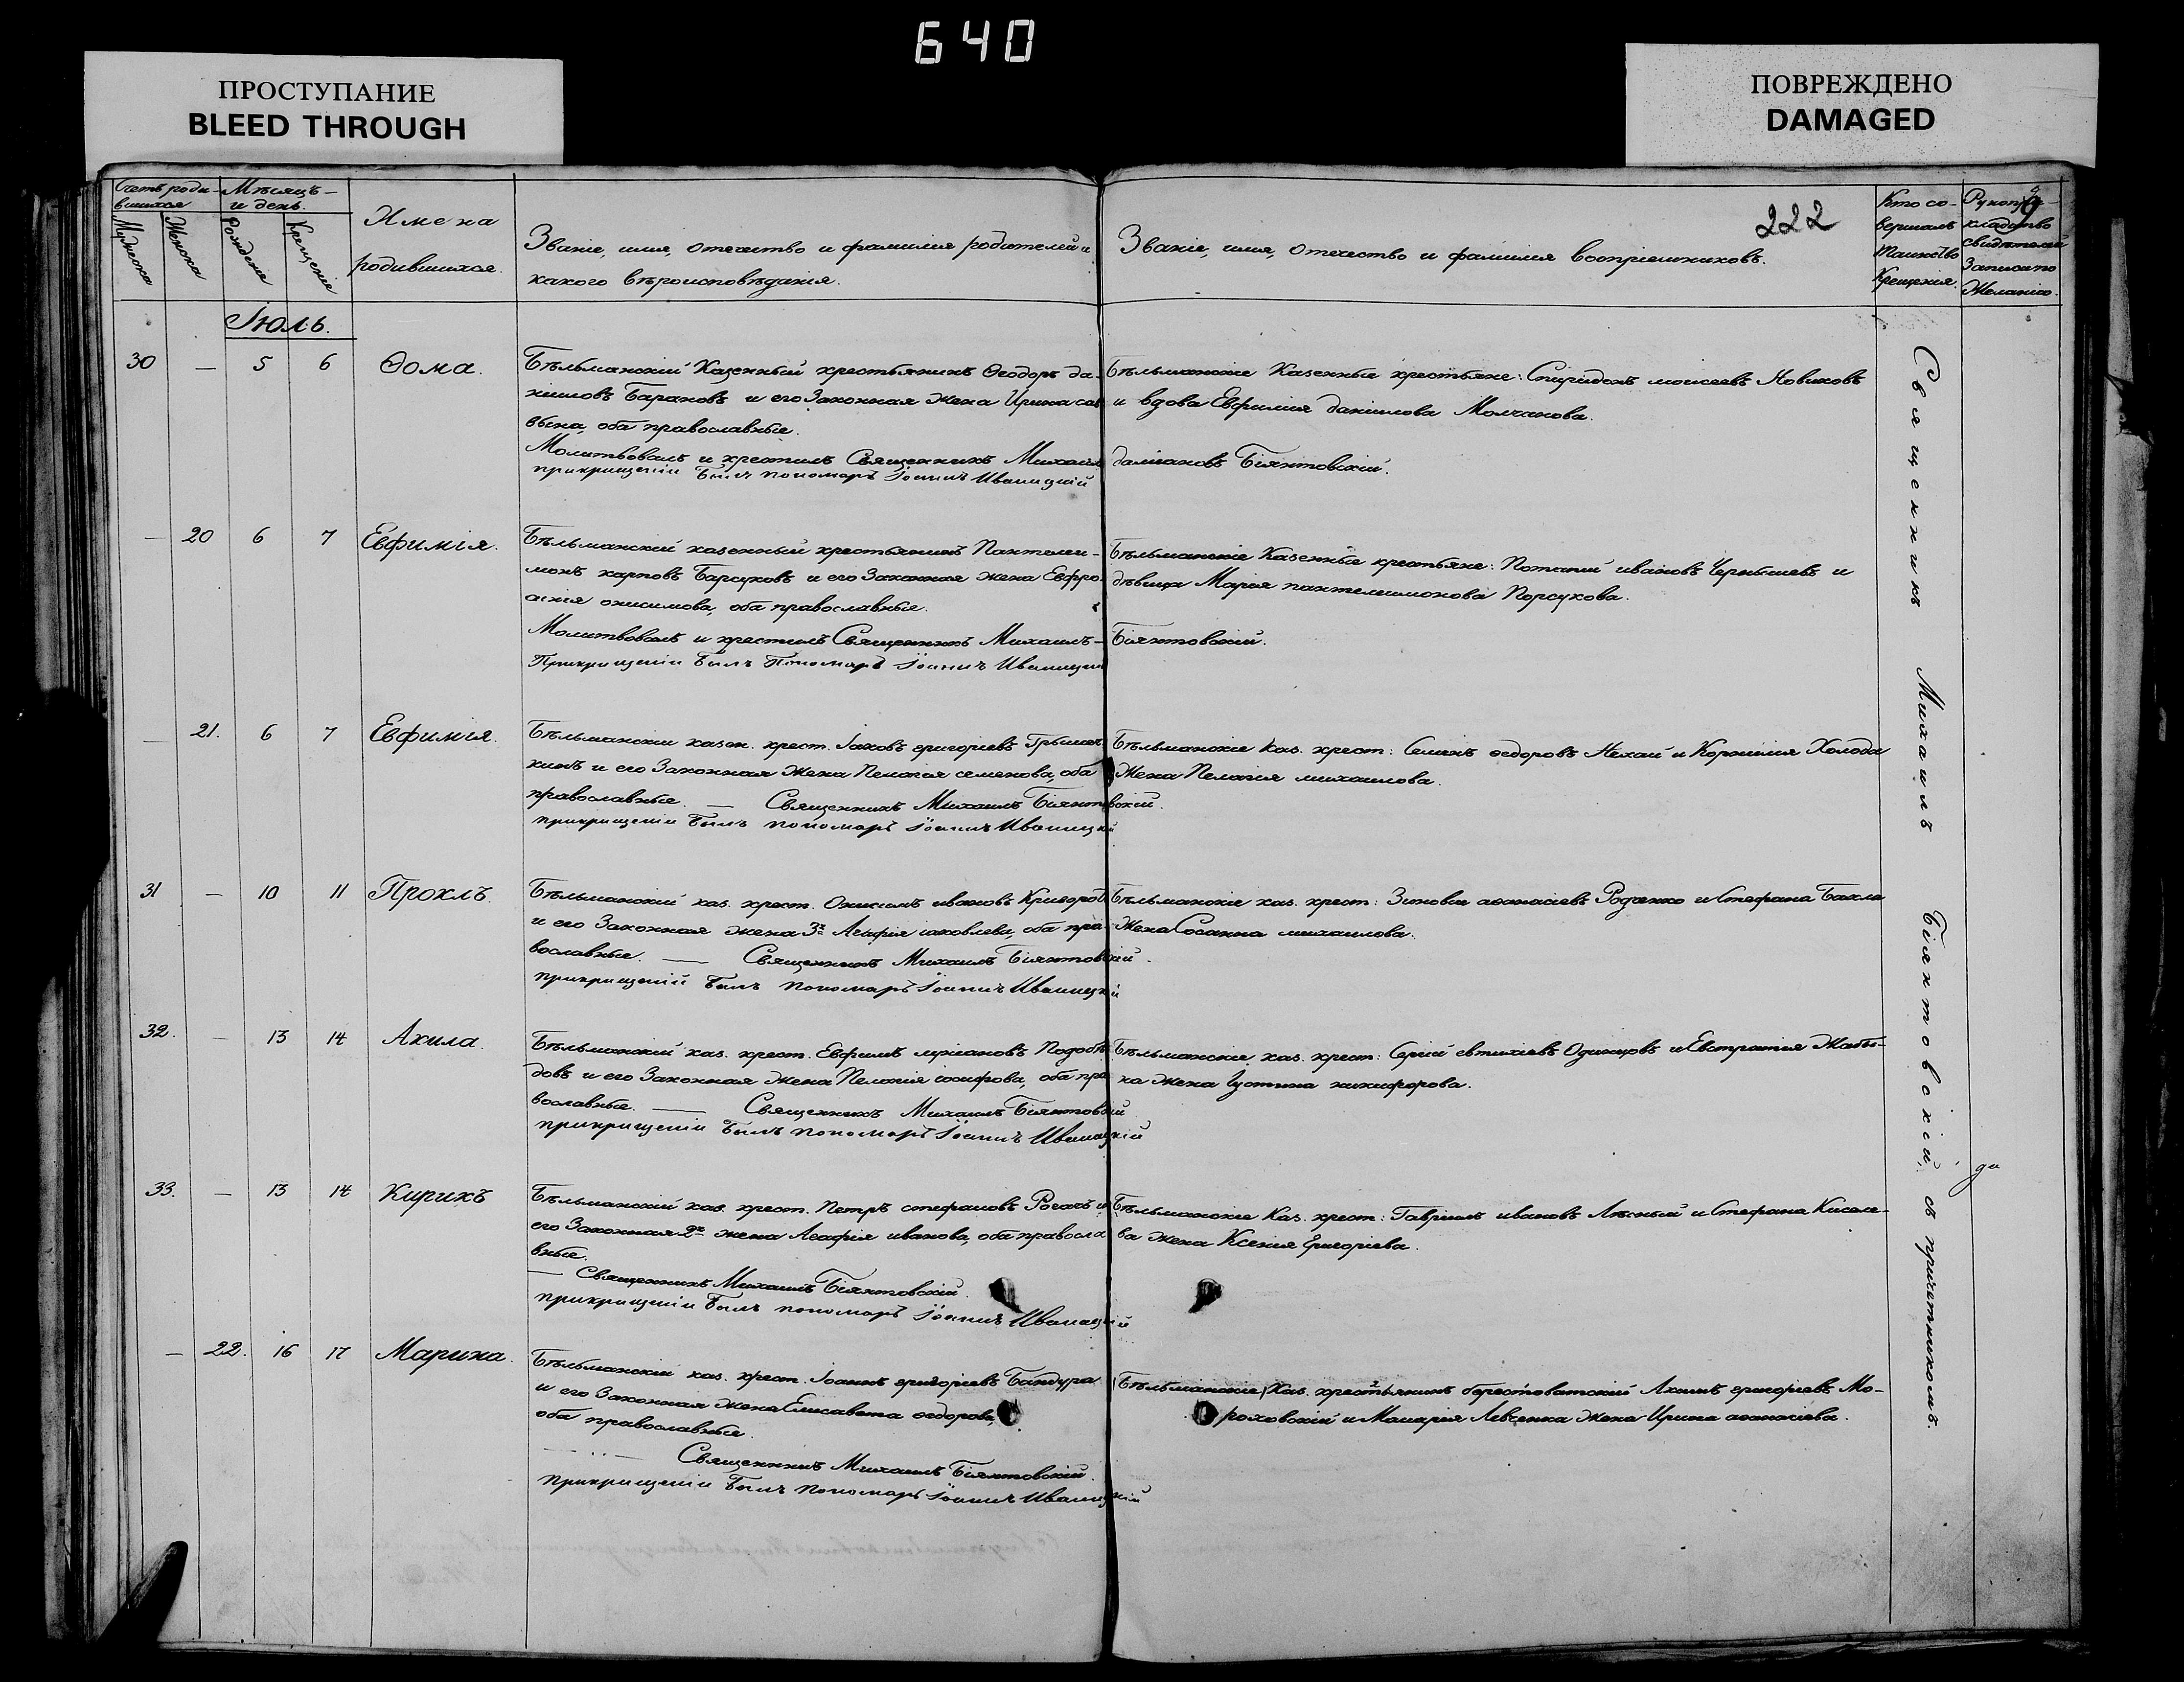 640
ПРОСТУПАНИЕ
BLEED THROUGH
ПОВРЕЖДЕНО
DAMAGED
222
Счетъ роди-
вшихся
Мѣсяцъ
и день.
Мужеска
Женска
Рожденія
Крещенія
Имена
родившихся.
Званіе, имя, отечество и фамилія родителей и
какого вѣроисповѣданія.
Званіе, имя, отечество и фамилія воспріемниковъ.
Кто со-
вершалъ
таинство
Крещенія.
Рукопри-
кладство
свидѣтелей
Записи по
Желанію.
Іюль.
30 — 5 6 Ѳома.
Бѣльманскій Казенный крестьянинъ Ѳеодоръ да-
ниловъ Барановъ и его Законная жена Ирина сав
вына, оба православные.
Молитвовалъ и крестилъ Священникъ Михаилъ
прикрищеніи былъ пономарь Іоаннъ Иваницкій
Бѣльманскіе Казенные крестьяне: Спиридонъ моисеевъ Новиковъ
и вдова Евфимія даніилова Молчанова.
даміановъ Біянтовскій.
— 20 6 7 Евфимія.
Бѣльманскій казенный крестьянинъ Пантелеи-
монъ карповъ Барсуковъ и его Законная жена Евфро-
синія онисимова, оба православные.
Молитвовалъ и крестилъ Священникъ Михаилъ
Прикрищеніи былъ Пономарь Іоаннъ Иваницкій
Бѣльманскіе Казенные крестьяне: Потапій ивановъ Чернышевъ и
дѣвица Марія пантелеимонова Порсукова.
Біянтовскій.
— 21. 6 7 Евфимія.
Бѣльманскіи казен. крест. Іаковъ григоріевъ
кинъ и его Законная жена Пелагія семенова, оба
православные. — Священникъ Михаилъ Біянтовскій.
прикрищеніи былъ пономарь Іоаннъ Иваницкій
Бѣльманскіе каз. крест: Симонъ ѳедоровъ Нехай и Корнилія Холода
Жена Пелагія михаилова.
31 — 10 11 Проклъ.
Бѣльманскій каз. крест. Онисимъ ивановъ
и его Законная жена 3я Агафія іаковлева, оба пра-
вославные. — Священникъ Михаилъ Біянтовскій.
прикрищеніи былъ пономарь Іоаннъ Иваницкій
Бѣльманскіе каз. крест: Зиновій аѳанасіевъ Родзенко и Стефана
Жена Сосанна михаилова.
32. — 13 14 Акила.
Бѣльманскій каз. крест. Евфимъ
довъ и его Законная жена Пелагія іосифова, оба пра
вославные. — Священникъ Михаилъ Біянтовскій
прикрищеніи былъ пономарь Іоаннъ Иваницкій
Бѣльманскіе каз. крест: Сергій евтихіевъ Одинцовъ и Евстратія Жабы-
ка жена Іустина никифорова.
33. — 13 14 Кирикъ
Бѣльманскій каз. крест. Петръ стефановъ Рогачъ и
его Законная 2я жена Агафія иванова, оба правосла
вные.
— Священникъ Михаилъ Біянтовскій.
прикрищеніи былъ пономарь Іоаннъ Иваницкій
Бѣльманскіе Каз. крест: Гавріилъ ивановъ Лѣсный и Стефана Киселе-
ва жена Ксенія григоріева.
— 22. 16 17 Марина.
Бѣльманскій каз. крест. Іоаннъ григоріевъ Бандура
и его Законная жена Елисавета ѳедорова,
оба православные.
Священникъ Михаилъ Біянтовскій.
прикрищеніи былъ пономарь Іоаннъ Иваницкій
Бѣльманскіе Каз. крестьянинъ берестоватскій Акимъ григоріевъ Мо-
роховскій и Макарія Левченка жена Ирина аѳанасіева.
Священникъ Михаилъ Біянтовскій, съ причетникомъ.